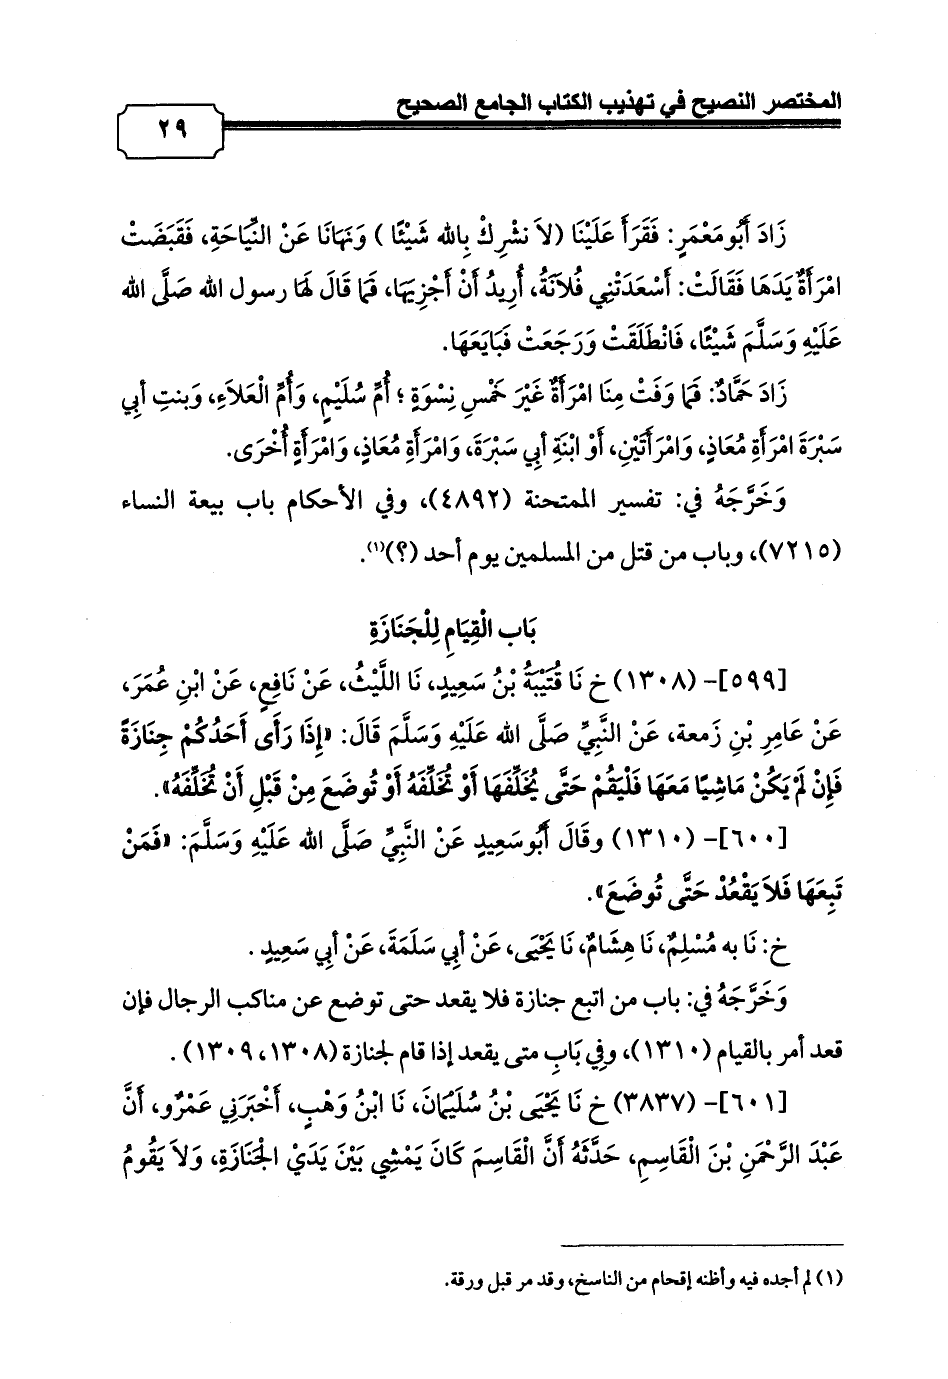 المختصر النصيح في تهذيب الكتاب الجامع الصحيح
٢٩
زَادَ أَبُومَعْمَرٍ: فَقَرَأَ عَلَيْنَا (لاَ نشْرِكْ بِالله شَيْئًا ) وَنَهَانَا عَنْ النِّيَاحَةِ، فَقَبَضَتْ
امْرَأَةٌ يَدَهَا فَقَالَتْ: أَسْعَدَتْنِي فُلاَنَةُ، أُرِيدُ أَنْ أَجْزِيَهَا، فَمَا قَالَ لَهَا رسول الله صَلَّى الله
عَلَيْهِ وَسَلَّمَ شَيْئًا، فَانْطَلَقَتْ وَرَجَعَتْ فَبَايَعَهَا.
زَادَ حَمَّادٌ: فَمَا وَفَتْ مِنَا امْرَأَةٌ غَيْرَ خَمْسِ نِسْوَةٍ ؛ أُمِّ سُلَيْمٍ، وَأُمِّ الْعَلاَءِ، وَبنتِ أبِي
سَبْرَةَ امْرَأَةِ مُعَاذٍ، وَامْرَأَتَيْنِ، أَوْ ابْنَةِ أبِي سَبْرَةَ، وَامْرَأَةِ مُعَاذٍ، وَامْرَأَةٍ أُخْرَى.
وَخَرَّجَهُ فِي: تفسير الممتحنة (٤٨٩٢)، وفي الأحكام باب بيعة النساء
(٧٢١٥)، وباب من قتل من المسلمين يوم أحد (؟)(١).
بَاب الْقِيَامِ لِلْجَنَازَةِ
[٥٩٩]- (١٣٠٨) خ نَا قُتَيْبَةُ بْنُ سَعِيدٍ، نَا اللَّيْثُ، عَنْ نَافِعٍ، عَنْ ابْنِ عُمَرَ،
عَنْ عَامِرِ بْنِ زَمعة، عَنْ النَّبِيِّ صَلَّى الله عَلَيْهِ وَسَلَّمَ قَالَ: «إِذَا رَأَى أَحَدُكُمْ جِنَازَةً
فَإِنْ لَمْ يَكُنْ مَاشِيًا مَعَهَا فَلْيَقُمْ حَتَّى يُخَلِّفَهَا أَوْ تُخَلِّفَهُ أَوْ تُوضَعَ مِنْ قَبْلِ أَنْ تُخَلِّفَهُ».
[٦٠٠]- (١٣١٠) وقَالَ أَبُوسَعِيدٍ عَنْ النَّبِيِّ صَلَّى الله عَلَيْهِ وَسَلَّمَ: «فَمَنْ
تَبِعَهَا فَلاَ يَقْعُدْ حَتَّى تُوضَعَ».
خ: نَا به مُسْلِمٌ، نَا هِشَامٌ، نَا يَحْيَى، عَنْ أبِي سَلَمَةَ، عَنْ أبِي سَعِيدٍ .
وَخَرَّجَهُ فِي: باب من اتبع جنازة فلا يقعد حتى توضع عن مناكب الرجال فإن
قعد أمر بالقيام (١٣١٠)، وفِي بَابِ متى يقعد إذا قام لجنازة (١٣٠٨، ١٣٠٩) .
[٦٠١]- (٣٨٣٧) خ نَا يَحْيَى بْنُ سُلَيْمَانَ، نَا ابْنُ وَهْبٍ، أَخْبَرَنِي عَمْرٌو، أَنَّ
عَبْدَ الرَّحْمَنِ بْنَ الْقَاسِمِ، حَدَّثَهُ أَنَّ الْقَاسِمَ كَانَ يَمْشِي بَيْنَ يَدَيْ الْجَنَازَةِ، وَلاَ يَقُومُ
(١) لم أجده فيه وأظنه إقحام من الناسخ، وقد مر قبل ورقة.